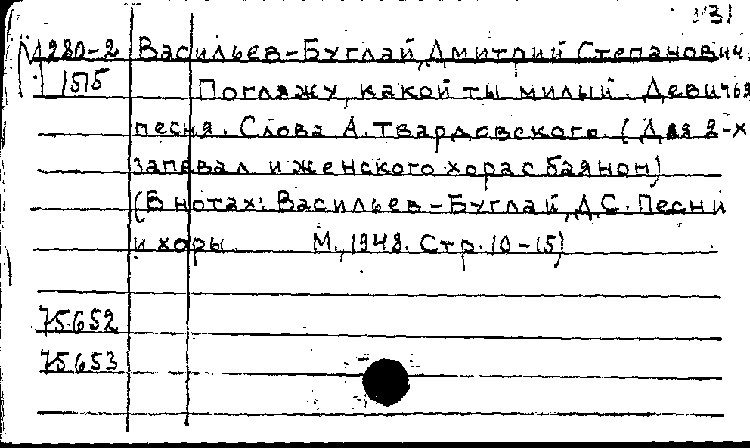 31
М280-2 Васильев-Буглай, Дмитрий Степанович.
1515 Погляжу, какой ты милый. Девичья
песня. Слова А. Твардовского. (Для 2-х
запевал и женского хора с баяном)
(В нотах: Васильев-Буглай, Д.С. Песни
и хоры М., 1948. Стр. 10-15)
75652
75653